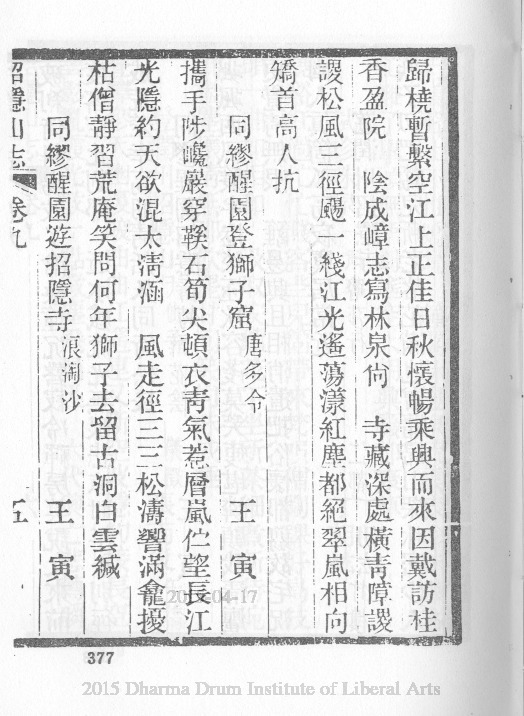 歸橈暫繫空江上正佳日秋懷暢乘興而來因戴訪桂
香盈院　陰成嶂志寫林泉尙　寺藏深處橫靑障謖
謖松風三徑颺一綫江光遙蕩漾紅塵都絕翠嵐相向
矯首高人抗
同繆醒園登獅子窟　唐多令　王寅
攜手陟巉巖穿鞵石筍尖頓衣靑氣惹層嵐伫望長江
光隱約天欲混太淸涵　風走徑三三松濤響滿龕擾
枯僧靜習荒庵笑問何年獅子去留古洞白雲緘
同繆醒園遊招隱寺　浪淘沙　王寅
招隱山志　卷九　五
377
2015-04-17
2015 Dharma Drum Institute of Liberal Arts